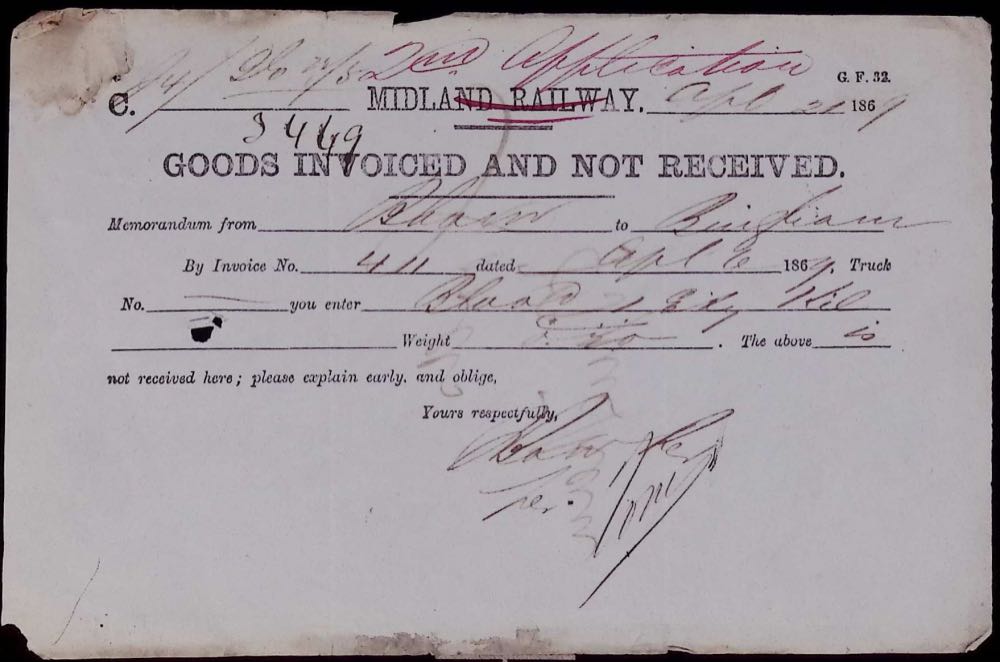 2nd Application
G. F. 32.
C. MIDLAND RAILWAY. Apl 21 1869
3449
GOODS INVOICED AND NOT RECEIVED.
Memorandum from to Bingham
By Invoice No. 411 dated Apl 6 1869. Truck
No. you enter
Weight . The above is
not received here; please explain early, and oblige,
Yours respectfully,
per.